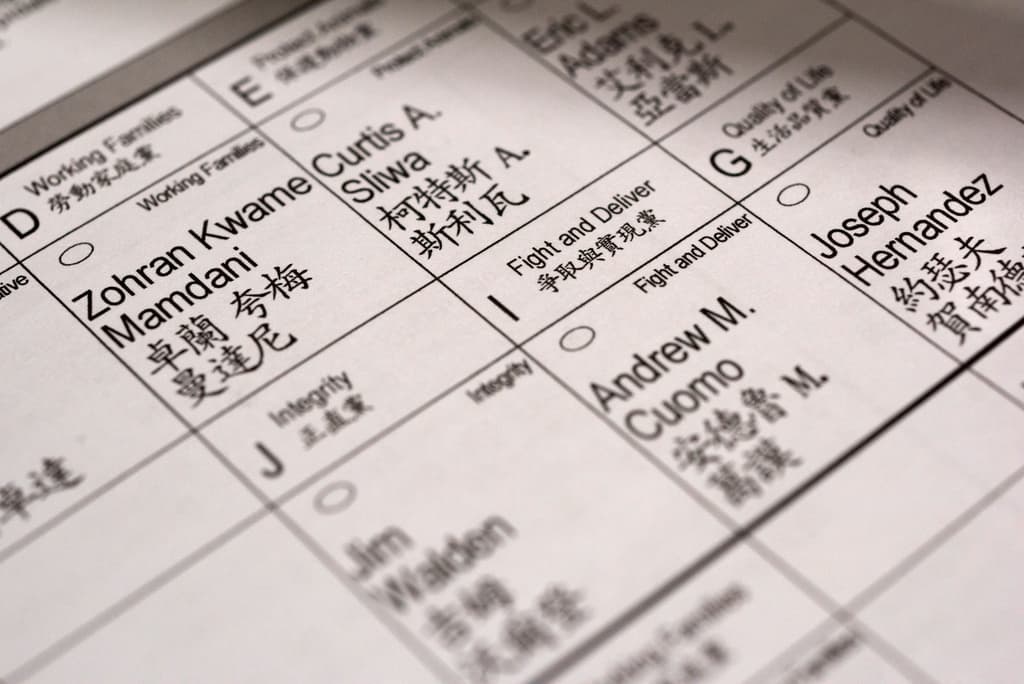 D
Working Families
勞動家庭黨
Working Families
Zohran Kwame
Mamdani
卓蘭 夸梅
曼達尼
E
Protect Animals
保護動物黨
Protect Animals
Curtis A.
Sliwa
柯特斯 A.
斯利瓦
Eric L.
Adams
艾利克 L.
亞當斯
G
Quality of Life
生活品質黨
Quality of Life
Joseph
Hernandez
約瑟夫
賀南德
I
Fight and Deliver
爭取與實現黨
Fight and Deliver
Andrew M.
Cuomo
安德魯 M.
葛謨
J
Integrity
正直黨
Integrity
Jim
Walden
吉姆
沃爾登
卓達
Working Families